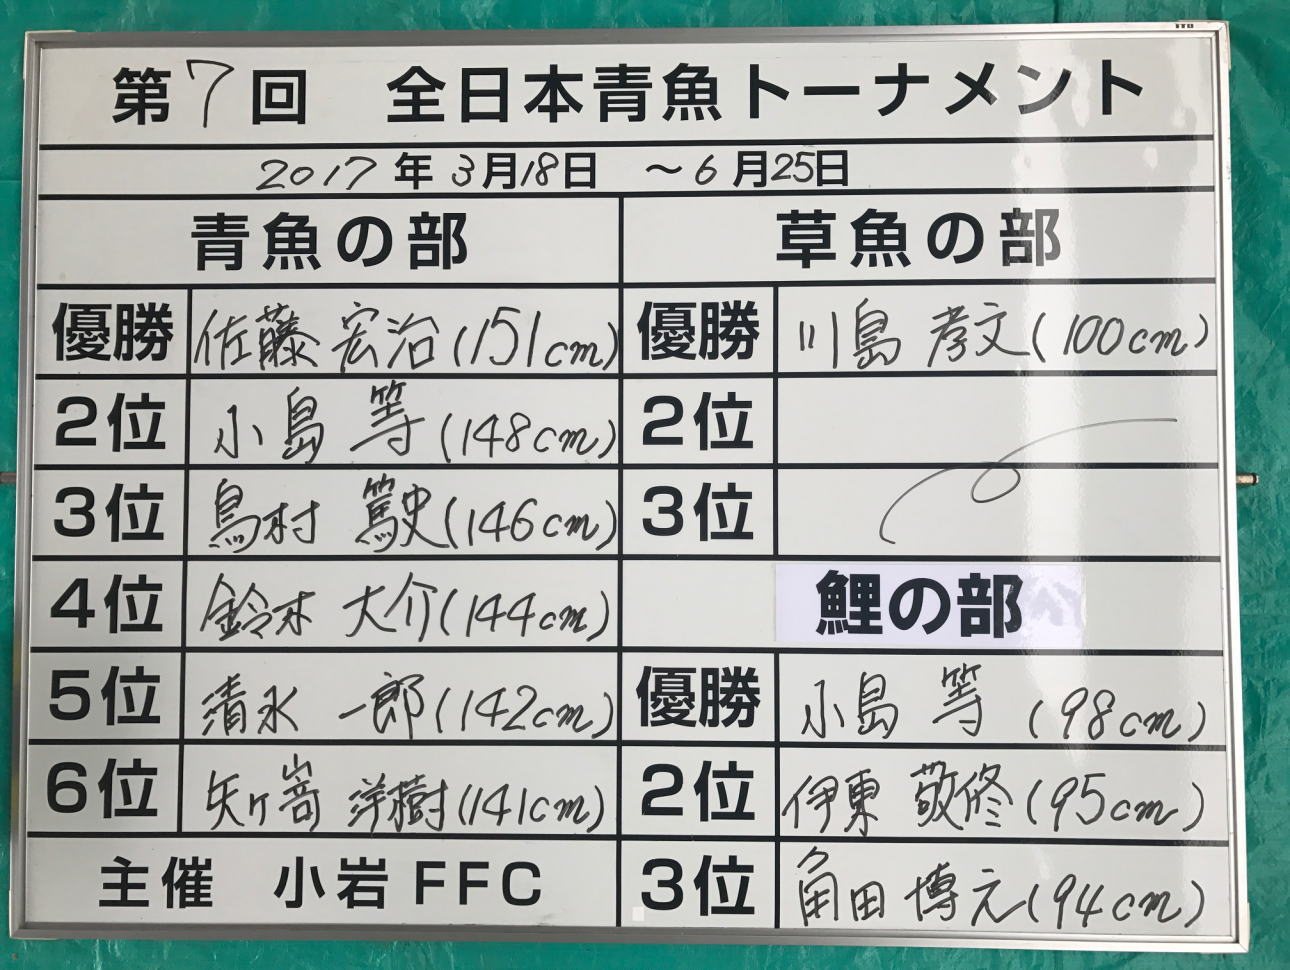 第7回 全日本青魚トーナメント
2017年3月18日 ～6月25日
青魚の部
優勝 佐藤 宏治(151cm)
2位 小島 等(148cm)
3位 鳥村 篤史(146cm)
4位 鈴木 大介(144cm)
5位 清水 一郎(142cm)
6位 矢ヶ嵜 洋樹(141cm)
主催 小岩FFC
草魚の部
優勝 川島 孝文(100cm)
2位
3位
鯉の部
優勝 小島 等(98cm)
2位 伊東 敬修(95cm)
3位 角田 博元(94cm)